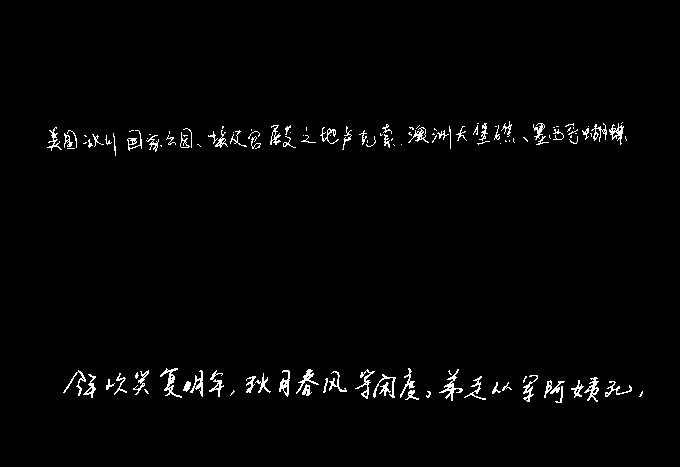 美国冰川国家公园、埃及宫殿之地卢克索、澳洲大堡礁、墨西哥蝴蝶
今年欢笑复明年，秋月春风等闲度。弟走从军阿姨死，